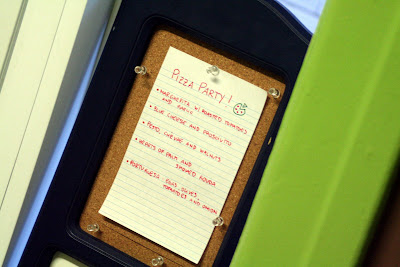 PIZZA PARTY!
• MARGHERITA W/ ROASTED TOMATOES
AND GARLIC
• BLUE CHEESE AND PROSCIUTTO
• PESTO, CHEVRE AND WALNUTS
• HEARTS OF PALM AND
SMOKED GOUDA
• PORTUGUESA: EGGS, OLIVES,
TOMATOES AND ONION